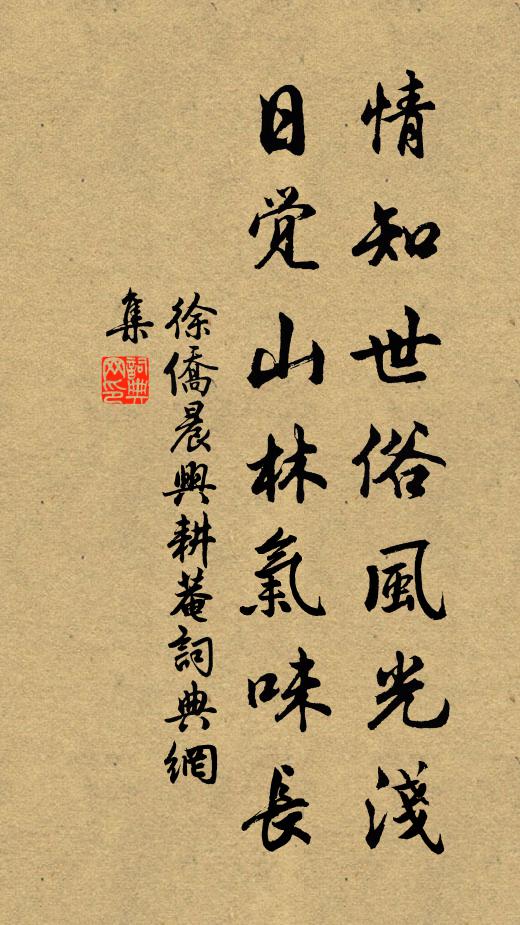 情知世俗風光淺
日覚山林氣味長
徐僑晨興耕菴詞典網
集
詞典
网印